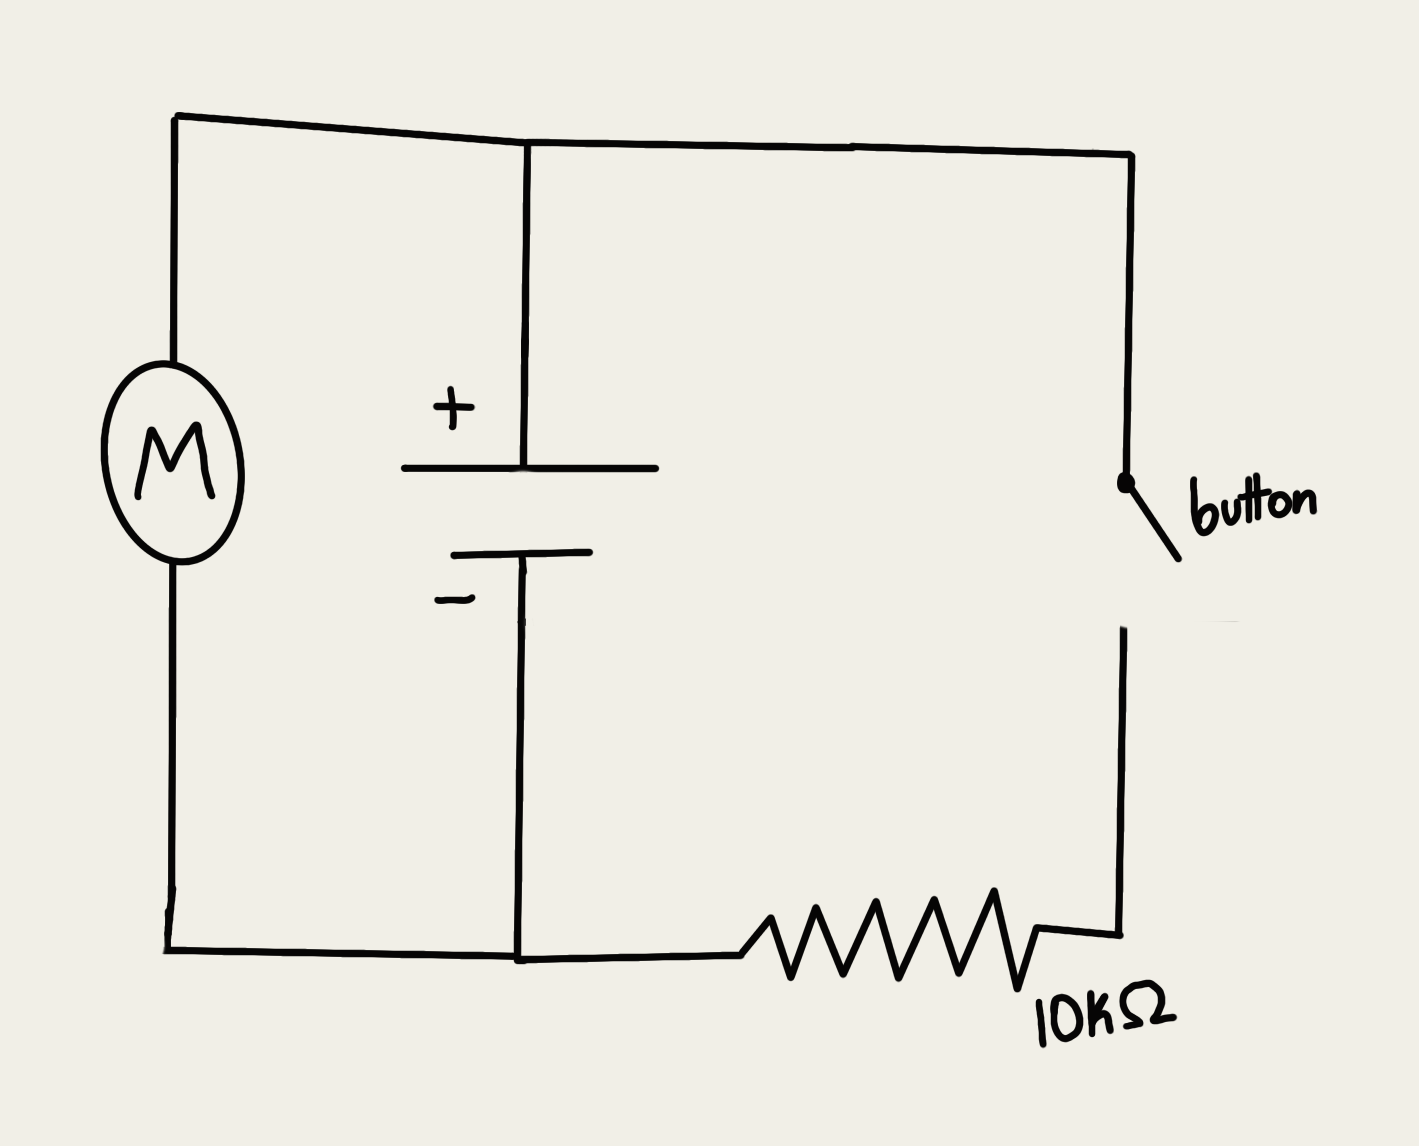 +
M
button
−
10KΩ